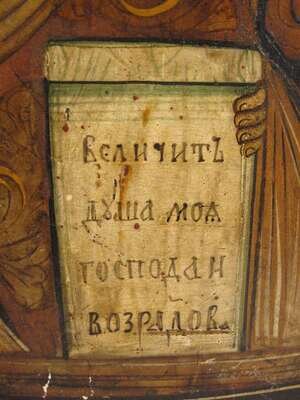 величитъ
душа моѧ
господа и
возрадов.